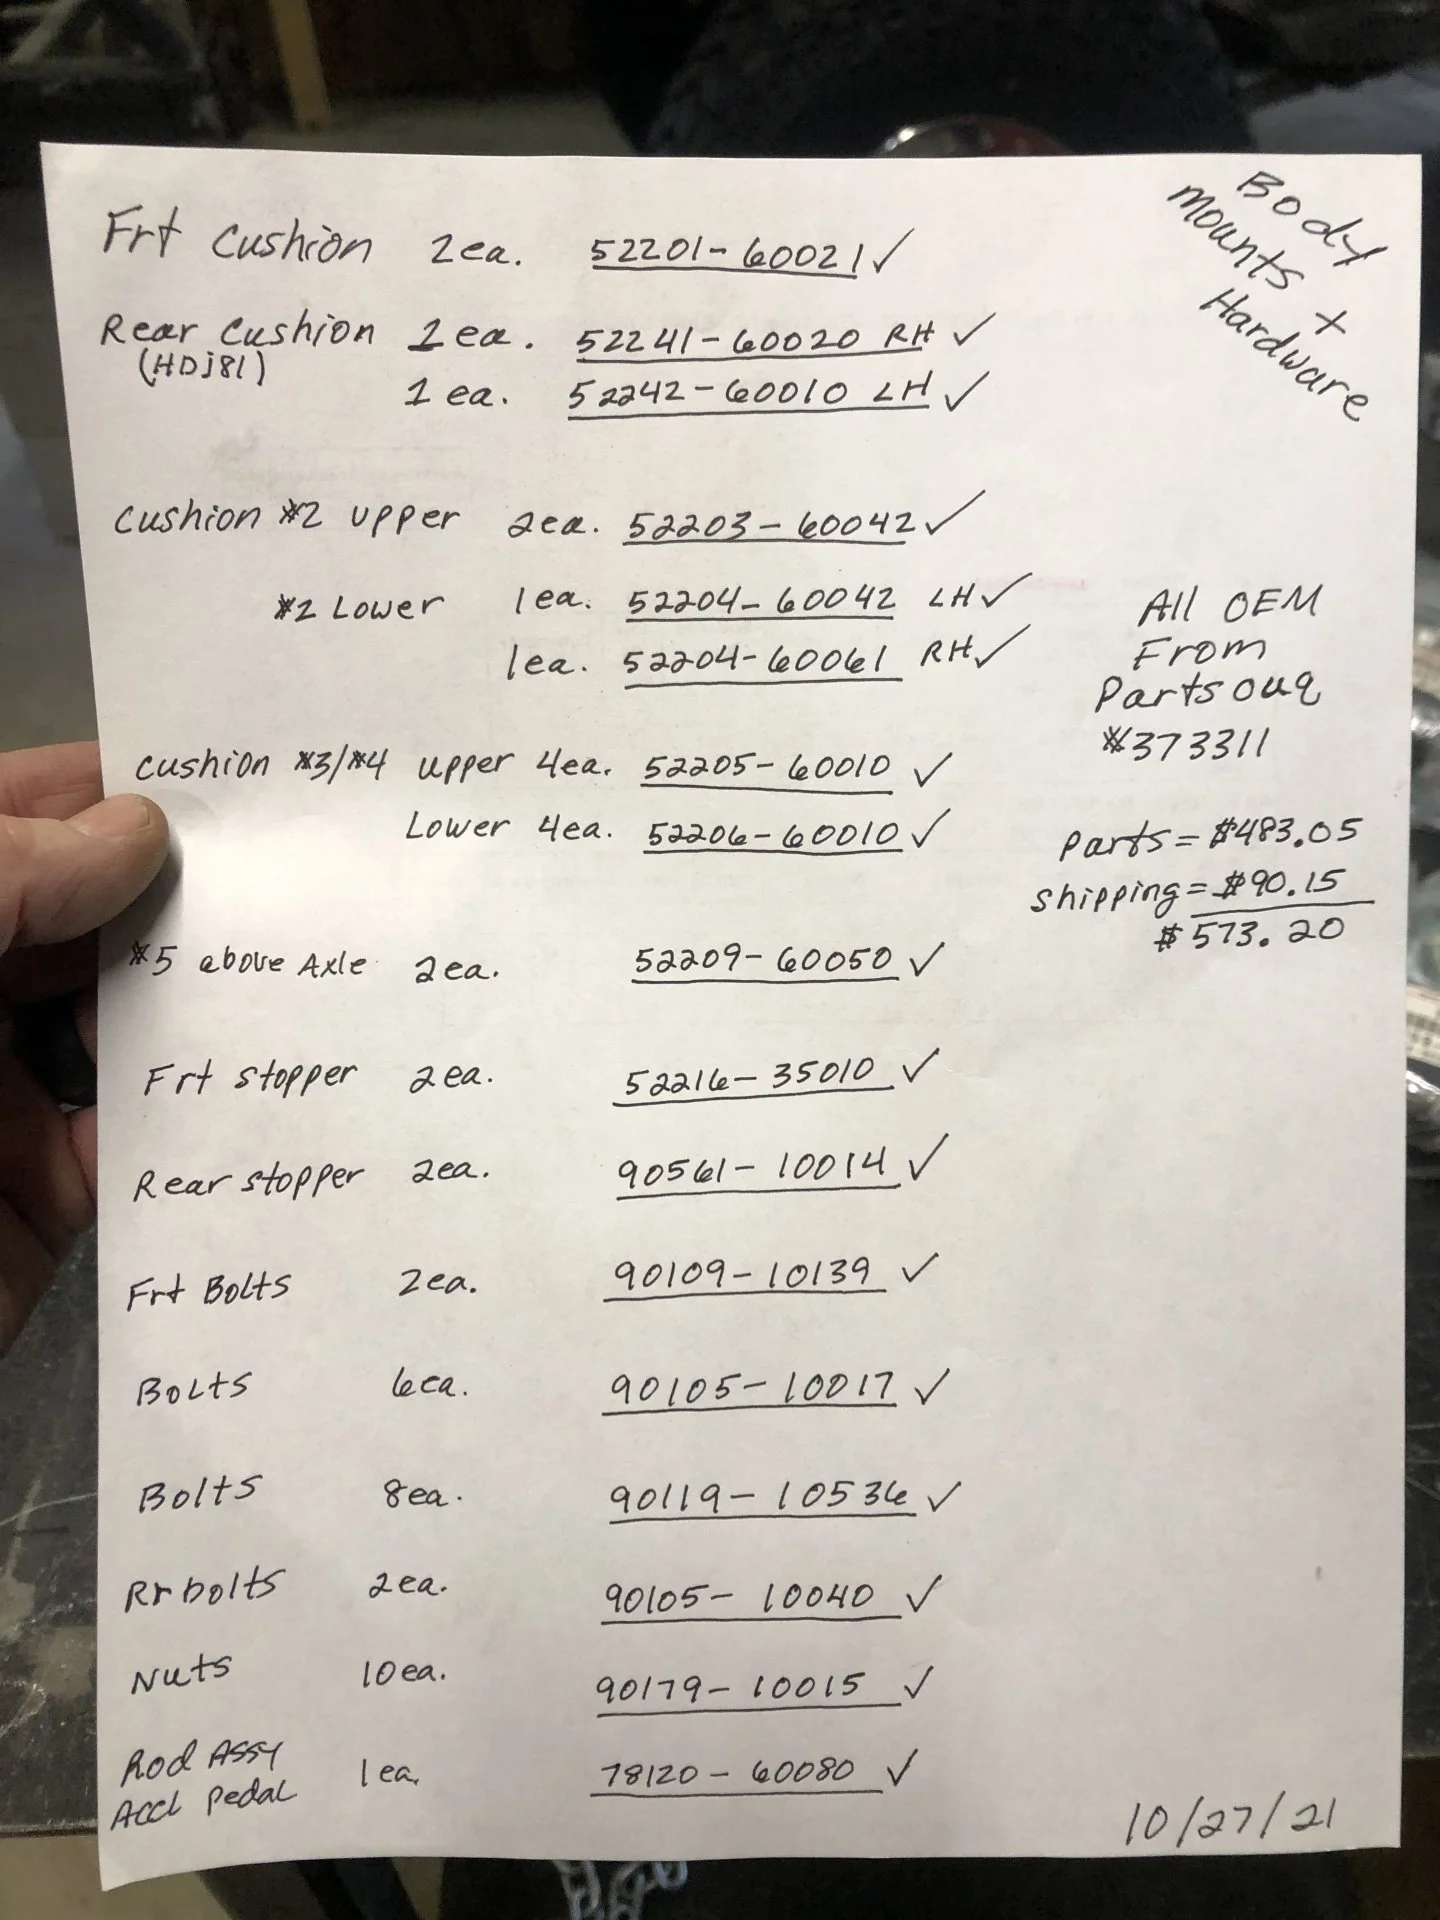 Body
mounts +
Hardware
Frt Cushion 2ea. 52201-60021 ✓
Rear Cushion 1 ea. 52241-60020 RH ✓
(HDJ81)
1 ea. 52242-60010 LH ✓
Cushion #2 upper 2ea. 52203-60042 ✓
#2 Lower 1ea. 52204-60042 LH ✓
1ea. 52204-60061 RH ✓
All OEM
From
Partsouq
#373311
Cushion #3/#4 upper 4ea. 52205-60010 ✓
Lower 4ea. 52206-60010 ✓
Parts = $483.05
Shipping = $90.15
$573.20
#5 above Axle 2ea. 52209-60050 ✓
Frt stopper 2ea. 52216-35010 ✓
Rear stopper 2ea. 90561-10014 ✓
Frt Bolts 2ea. 90109-10139 ✓
Bolts 6ea. 90105-10017 ✓
Bolts 8ea. 90119-10536 ✓
Rr bolts 2ea. 90105-10040 ✓
Nuts 10ea. 90179-10015 ✓
Rod Assy
Accl Pedal 1ea. 78120-60080 ✓
10/27/21